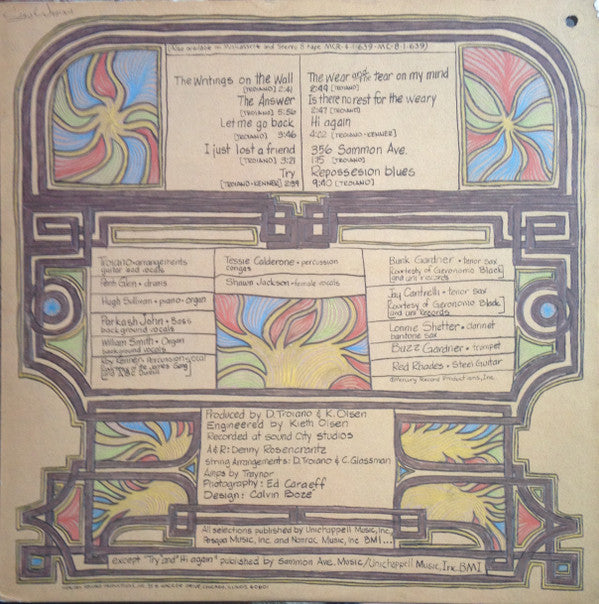 (Also available on Musicassette and Stereo 8 Tape MCR-4-1-639 • MC-8-1-639)
The Writings on the Wall
[TROIANO] 2:41
The Answer
[TROIANO] 5:56
Let me go back
[TROIANO] 3:46
I just lost a friend
[TROIANO] 3:21
Try
[TROIANO-KENNER] 2:39
The wear and the tear on my mind
2:49 [TROIANO]
Is there no rest for the weary
2:47 [TROIANO]
Hi again
4:02 [TROIANO-KENNER]
356 Sammon Ave.
1:15 [TROIANO]
Repossesion blues
9:40 [TROIANO]
Troiano • arrangements
guitar and vocals
Penti Glen • drums
Hugh Sullivan • piano • organ
Prakash John • Bass
background vocals
William Smith • Organ
background vocals
Roy Kenner • Percussion • vocal
Tessie Calderone • percussion
congas
Shawn Jackson • female vocals
Bunk Gardner • tenor sax
Courtesy of Geronomo Black
and uni records
Jay Cantrelli • tenor sax
Courtesy of Geronimo Black
and uni Records
Lonnie Shetter • clarinet
baritone sax
Buzz Gardner • trumpet
Red Rhodes • Steel Guitar
Mercury Record Productions, Inc.
Produced by D. Troiano & K. Olsen
Engineered by Kieth Olsen
Recorded at sound City studios
A&R: Denny Rosencrantz
String Arrangements: D. Troiano & C. Glassman
Amps by Traynor
Photography: Ed Caraeff
Design: Calvin Boze
All selections published by Unichappell Music, Inc.
Music, Inc. and Music, Inc BMI...
except "Try" and "Hi again" published by Sammon Ave. Music/Unichappell Music, Inc. BMI
35 E. WACKER DRIVE, CHICAGO, ILLINOIS 60601